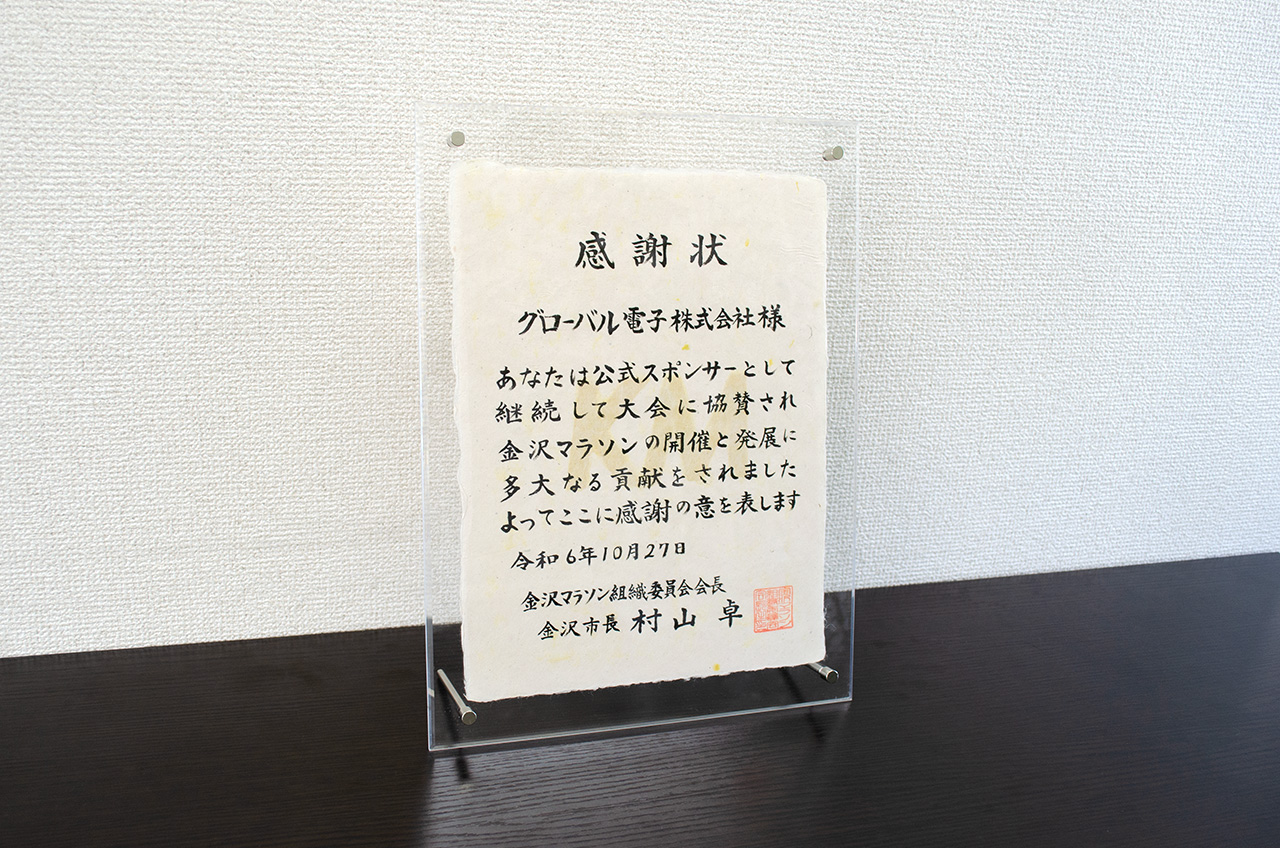 感謝状
グローバル電子株式会社様
あなたは公式スポンサーとして
継続して大会に協賛され
金沢マラソンの開催と発展に
多大なる貢献をされました
よってここに感謝の意を表します
令和6年10月27日
金沢マラソン組織委員会会長
金沢市長 村山 卓